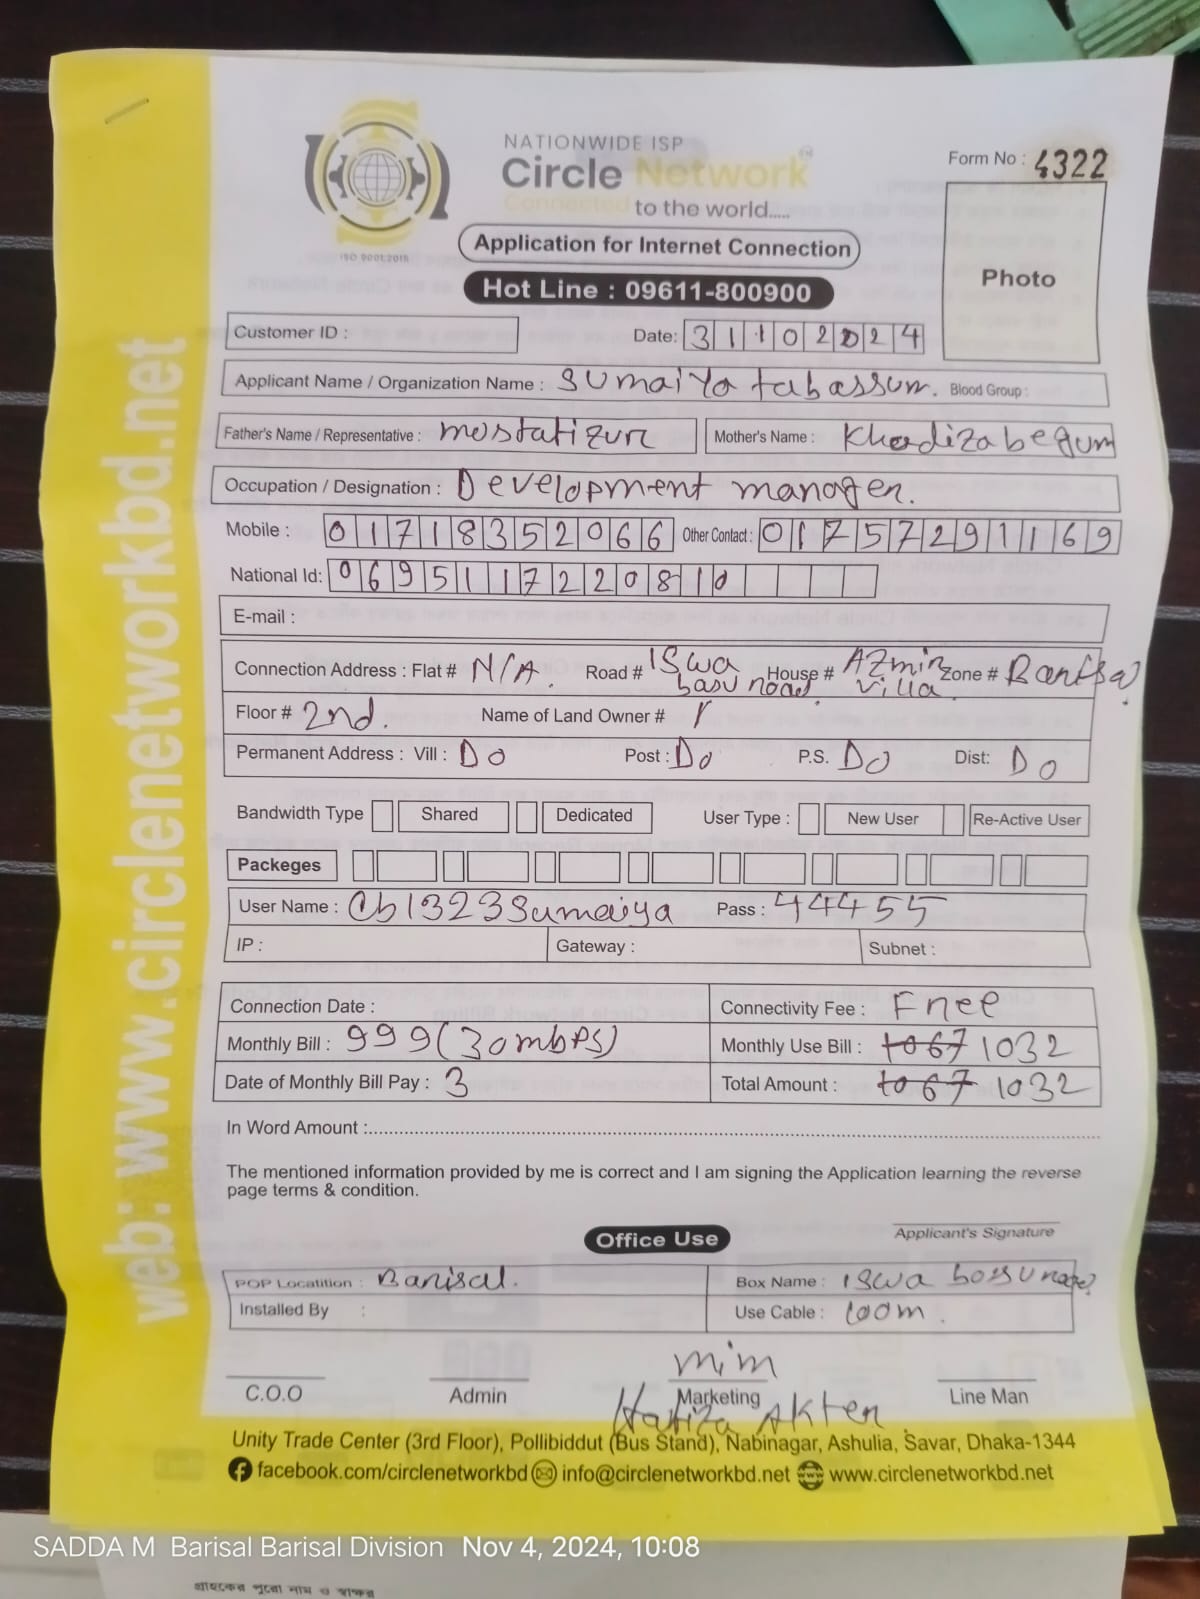 NATIONWIDE ISP
Circle Network
Connected to the world.....
ISO 9001:2015
Form No : 4322
Application for Internet Connection
Hot Line : 09611-800900
Photo
Customer ID :
Date: 31102024
Applicant Name / Organization Name : Sumaiya tabassum. Blood Group :
Father's Name / Representative : mostafizur Mother's Name : Khadiza begum
Occupation / Designation : Development manager.
Mobile : 01718352066 Other Contact : 01757291169
National Id: 0695117220810
E-mail :
Connection Address : Flat # N/A. Road # ISwa basu road House # AZmir villa. Zone #
Floor # 2nd. Name of Land Owner #
Permanent Address : Vill : Do Post : Do P.S. Do Dist: Do
Bandwidth Type Shared Dedicated User Type : New User Re-Active User
Packeges
User Name : Cb1323Sumaiya Pass : 44455
IP : Gateway : Subnet :
Connection Date : Connectivity Fee : Free
Monthly Bill : 999(30mbPS) Monthly Use Bill : 1067 1032
Date of Monthly Bill Pay : 3 Total Amount : 1067 1032
In Word Amount :
The mentioned information provided by me is correct and I am signing the Application learning the reverse
page terms & condition.
Applicant's Signature
Office Use
POP Locatition : Barisal. Box Name : ISwa bossu road
Installed By : Use Cable : 100m.
mim
C.O.O Admin Marketing Line Man
Hafiza Akter
Unity Trade Center (3rd Floor), Pollibiddut (Bus Stand), Nabinagar, Ashulia, Savar, Dhaka-1344
facebook.com/circlenetworkbd info@circlenetworkbd.net www.circlenetworkbd.net
web: www.circlenetworkbd.net
SADDA M Barisal Barisal Division Nov 4, 2024, 10:08
গ্রাহকের পুরো নাম ও স্বাক্ষর